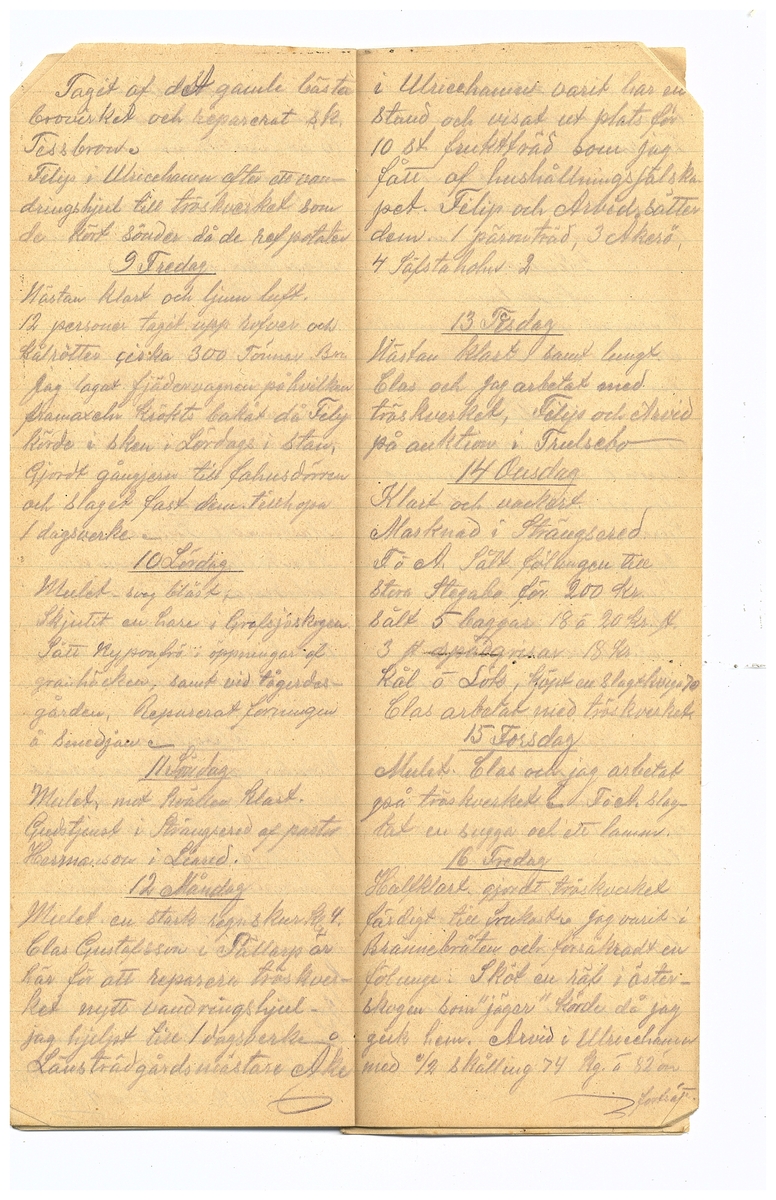 Taget af dett gamla bästa
brovirket och reparerat s.k.
Tissbron.
Filip i Ulricehamn efter ett van-
dringshjul till tröskverket som
de kört sönder då de ref potater
9 Fredag
Nästan klart och ljum luft.
12 personer taget upp rofvor och
Kålrötter cirka 300 Tönnor Bra
Jag lagat fjädervagnen på hvilken
framaxeln krökts bakåt då Felip
körde i sken i Lördags i stan,
Gjordt gångjern till fahusdörren
och slaget fast dem tillhopa
1 dagsverke
10 Lördag
Mulet svag blåst,
Skjutet en hare i Grafsjöskogen
Sått Nyponfrö i öppningar af
granhäcken, samt vid
gården, Reparerat
å
11 Söndag
Mulet, mot kvällen klart.
Gudstjenst i Strängsered af pastor
Hermansson i Liared.
12 Måndag
Mulet en stark regnskur Kl 4.
Clas Gustafsson i är
här för att reparera tröskver-
ket nytt vandringshjul-
jag hjelpt till 1 dagsverke
Länsträdgårdsmästare Åke
i Ulricehamn varit här en
stund och visat ut plats för
10 st fruktträd som jag
fått af hushållningssälska-
pet. Felip och Arvid sätter
dem. 1 päronträd, 3 Åkerö,
4 Säfstaholm 2
13 Tisdag
Nästan klart samt lungt
Clas och jag arbetat med
tröskverket, Felip och Arvid
på auktion i Trulsebo
14 Onsdag
Klart och vackert.
Marknad i Strängsered
F o A. Sålt föl till
Stora Stegabo för 200 kr.
sålt 5 baggar 18 á 20 kr. st.
3 st spädgrisar 18 kr
Kål o Lök, köpt en slagt 70
Clas arbetat med tröskverket
15 Torsdag
Mulet. Clas och jag arbetat
på tröskverket F o A. slag-
tat en sugga och ett lamm.
16 Fredag
Halfklart gjordt tröskverket
färdigt till jag varit i
Brännebråten och försäkradt en
fölunge. Sköt en räf i öster-
skogen som "jäger" körde då jag
gick hem. Arvid i Ulricehamn
med 1/2 skålling 74 Kg. á 82 öre
forts